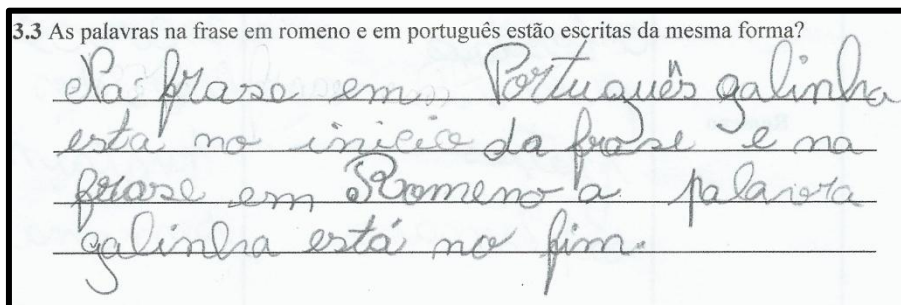 3.3 As palavras na frase em romeno e em português estão escritas da mesma forma?
Na frase em Português galinha
está no inicio da frase e na
frase em Romeno a palavra
galinha está no fim.